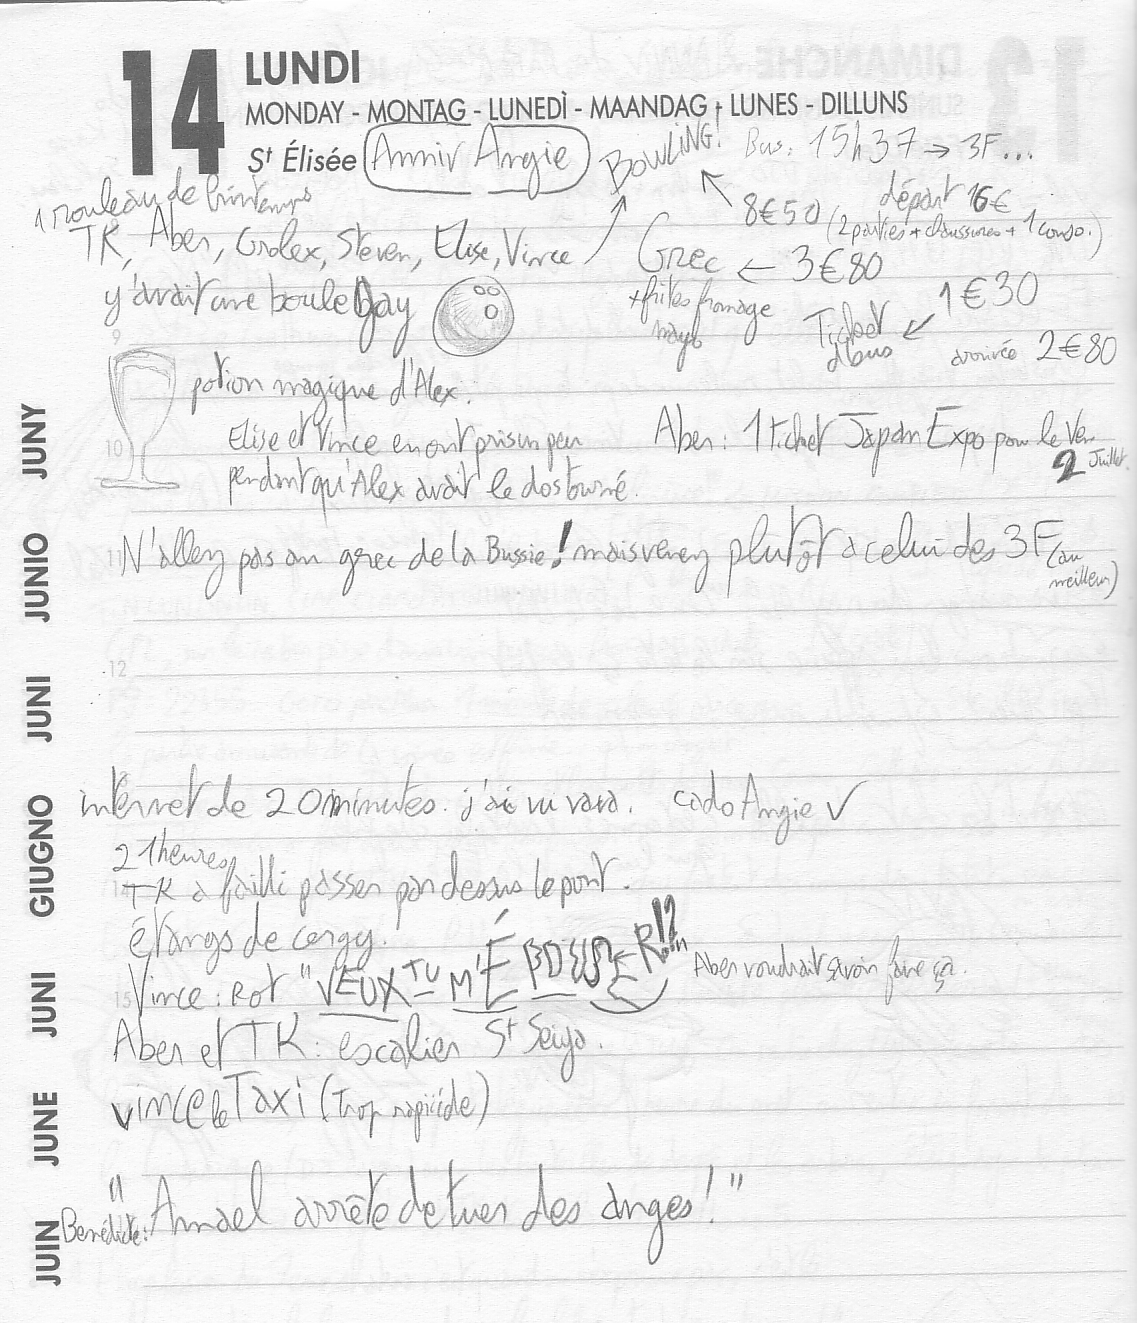 14 LUNDI
MONDAY - MONTAG - LUNEDÌ - MAANDAG - LUNES - DILLUNS
St Élisée Anniv Angie BOWLING! Bus: 15h37 → 3F...
1 rouleau de printemps
départ 16€
8€50 (2 parties + chaussures + 1 conso.)
TK, Aber, Steven, Elise, Vince
Grec ← 3€80
y'avait une boule Gay
+ frites fromage mayo
1€30
Ticket d'bus
arrivée 2€80
9
potion magique d'Alex.
10
Elise et Vince en ont pris un peu
pendant qu'Alex avait le dos tourné.
Aber: 1 ticket Japan Expo pour le Ven.
2 Juillet.
11
N'allez pas au grec de la Bussie! mais venez plutôt à celui des 3F (au meilleur)
12
internet de 20 minutes. j'ai vu vava. cado Angie ✓
21heures
TK a failli passer par dessus le pont.
étangs de cergy.
Vince: Rot "VEUX TU M'ÉPOUSER!? Aber voudrait savoir faire ça.
15
Aber et TK: escalier St Seiya.
vince le Taxi (Trop rapicide)
Bénédicte: "Annael arrête de tuer des anges!"
JUIN JUNE JUNI GIUGNO JUNI JUNIO JUNY